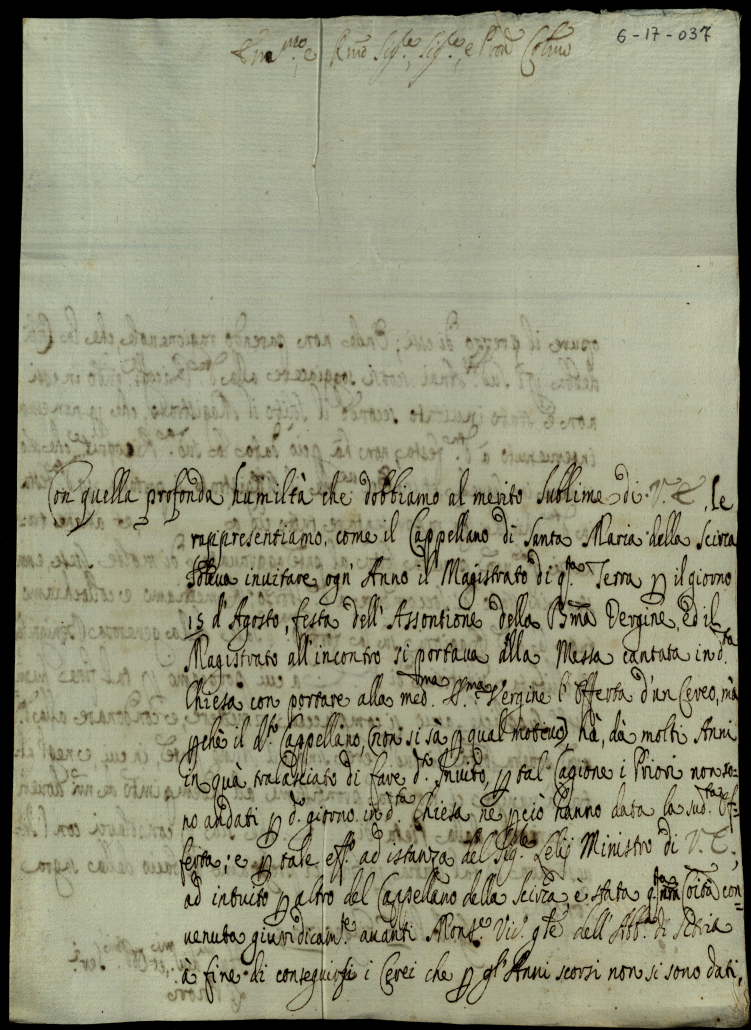 6-17-037
Em.mo, e R.mo Sig.re, Sig.re, e P'ron Col.mo
Con quella profonda humiltà che dobbiamo al merito sublime di V. E. le
rappresentiamo, come il Cappellano di Santa Maria della Scirca
soleva invitare ogn' Anno il Magistrato di q.ta Terra p il giorno
15 d'Agosto, festa dell' Assontione della Bma Vergine, Ed il
Magistrato all'incontro si portava alla Messa cantata in d.ta
Chiesa con portare alla med.ma S.ma Vergine l'Offerta d'un Cereo, mà
pchè il d.to Cappellano, (non si sà p qual motivo) hà, da molti Anni
in quà tralasciato di fare d.to Invito, p tal Cagione i Priori non so=
no andati p d.o giorno in d.ta Chiesa ne pciò hanno data la sud.ta Of=
ferta; e p tale eff.o ad istanza del Sig.re Lelij Ministro di V. E.,
ad intuito p altro del Cappellano della Scirca, è stata q.ta nra Coità con=
venuta giuridicam.te avanti Mons.re Vic.o gle dell' Abb.a di Sitria
à fine di conseguirsi i Cerei che p gl'Anni scorsi non si sono dati,